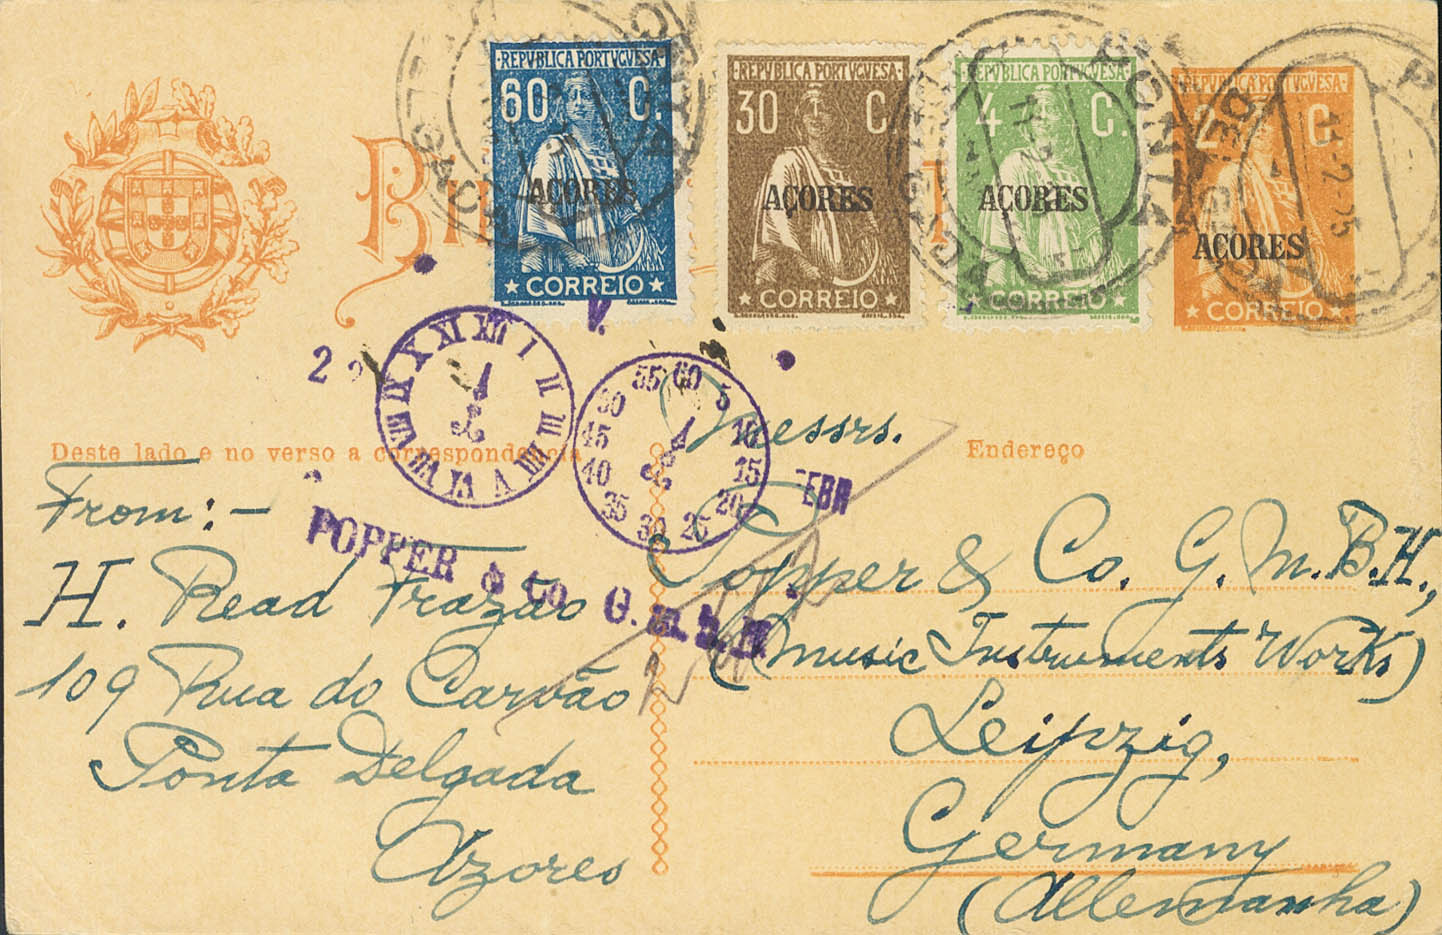 REPVBLICA PORTVGVESA
60 C.
AÇORES
CORREIO
REPVBLICA PORTVGVESA
30 C.
AÇORES
CORREIO
REPVBLICA PORTVGVESA
4 C.
AÇORES
CORREIO
REPVBLICA PORTVGVESA
2 C.
AÇORES
CORREIO
PONTA
V.
2
XII I II III IIII V VI VII VIII IX X XI
60 5 10 15 20 25 30 35 40 45 50 55
POPPER & Co. G.m.b.H.
Deste lado e no verso a correspondencia
Endereço
From:-
H. Read Frazão
109 Rua do Carvão
Ponta Delgada
Azores
Messrs.
Popper & Co. G. M. B. H.,
(Music Instruments Works)
Leipzig,
Germany
(Allemanha)